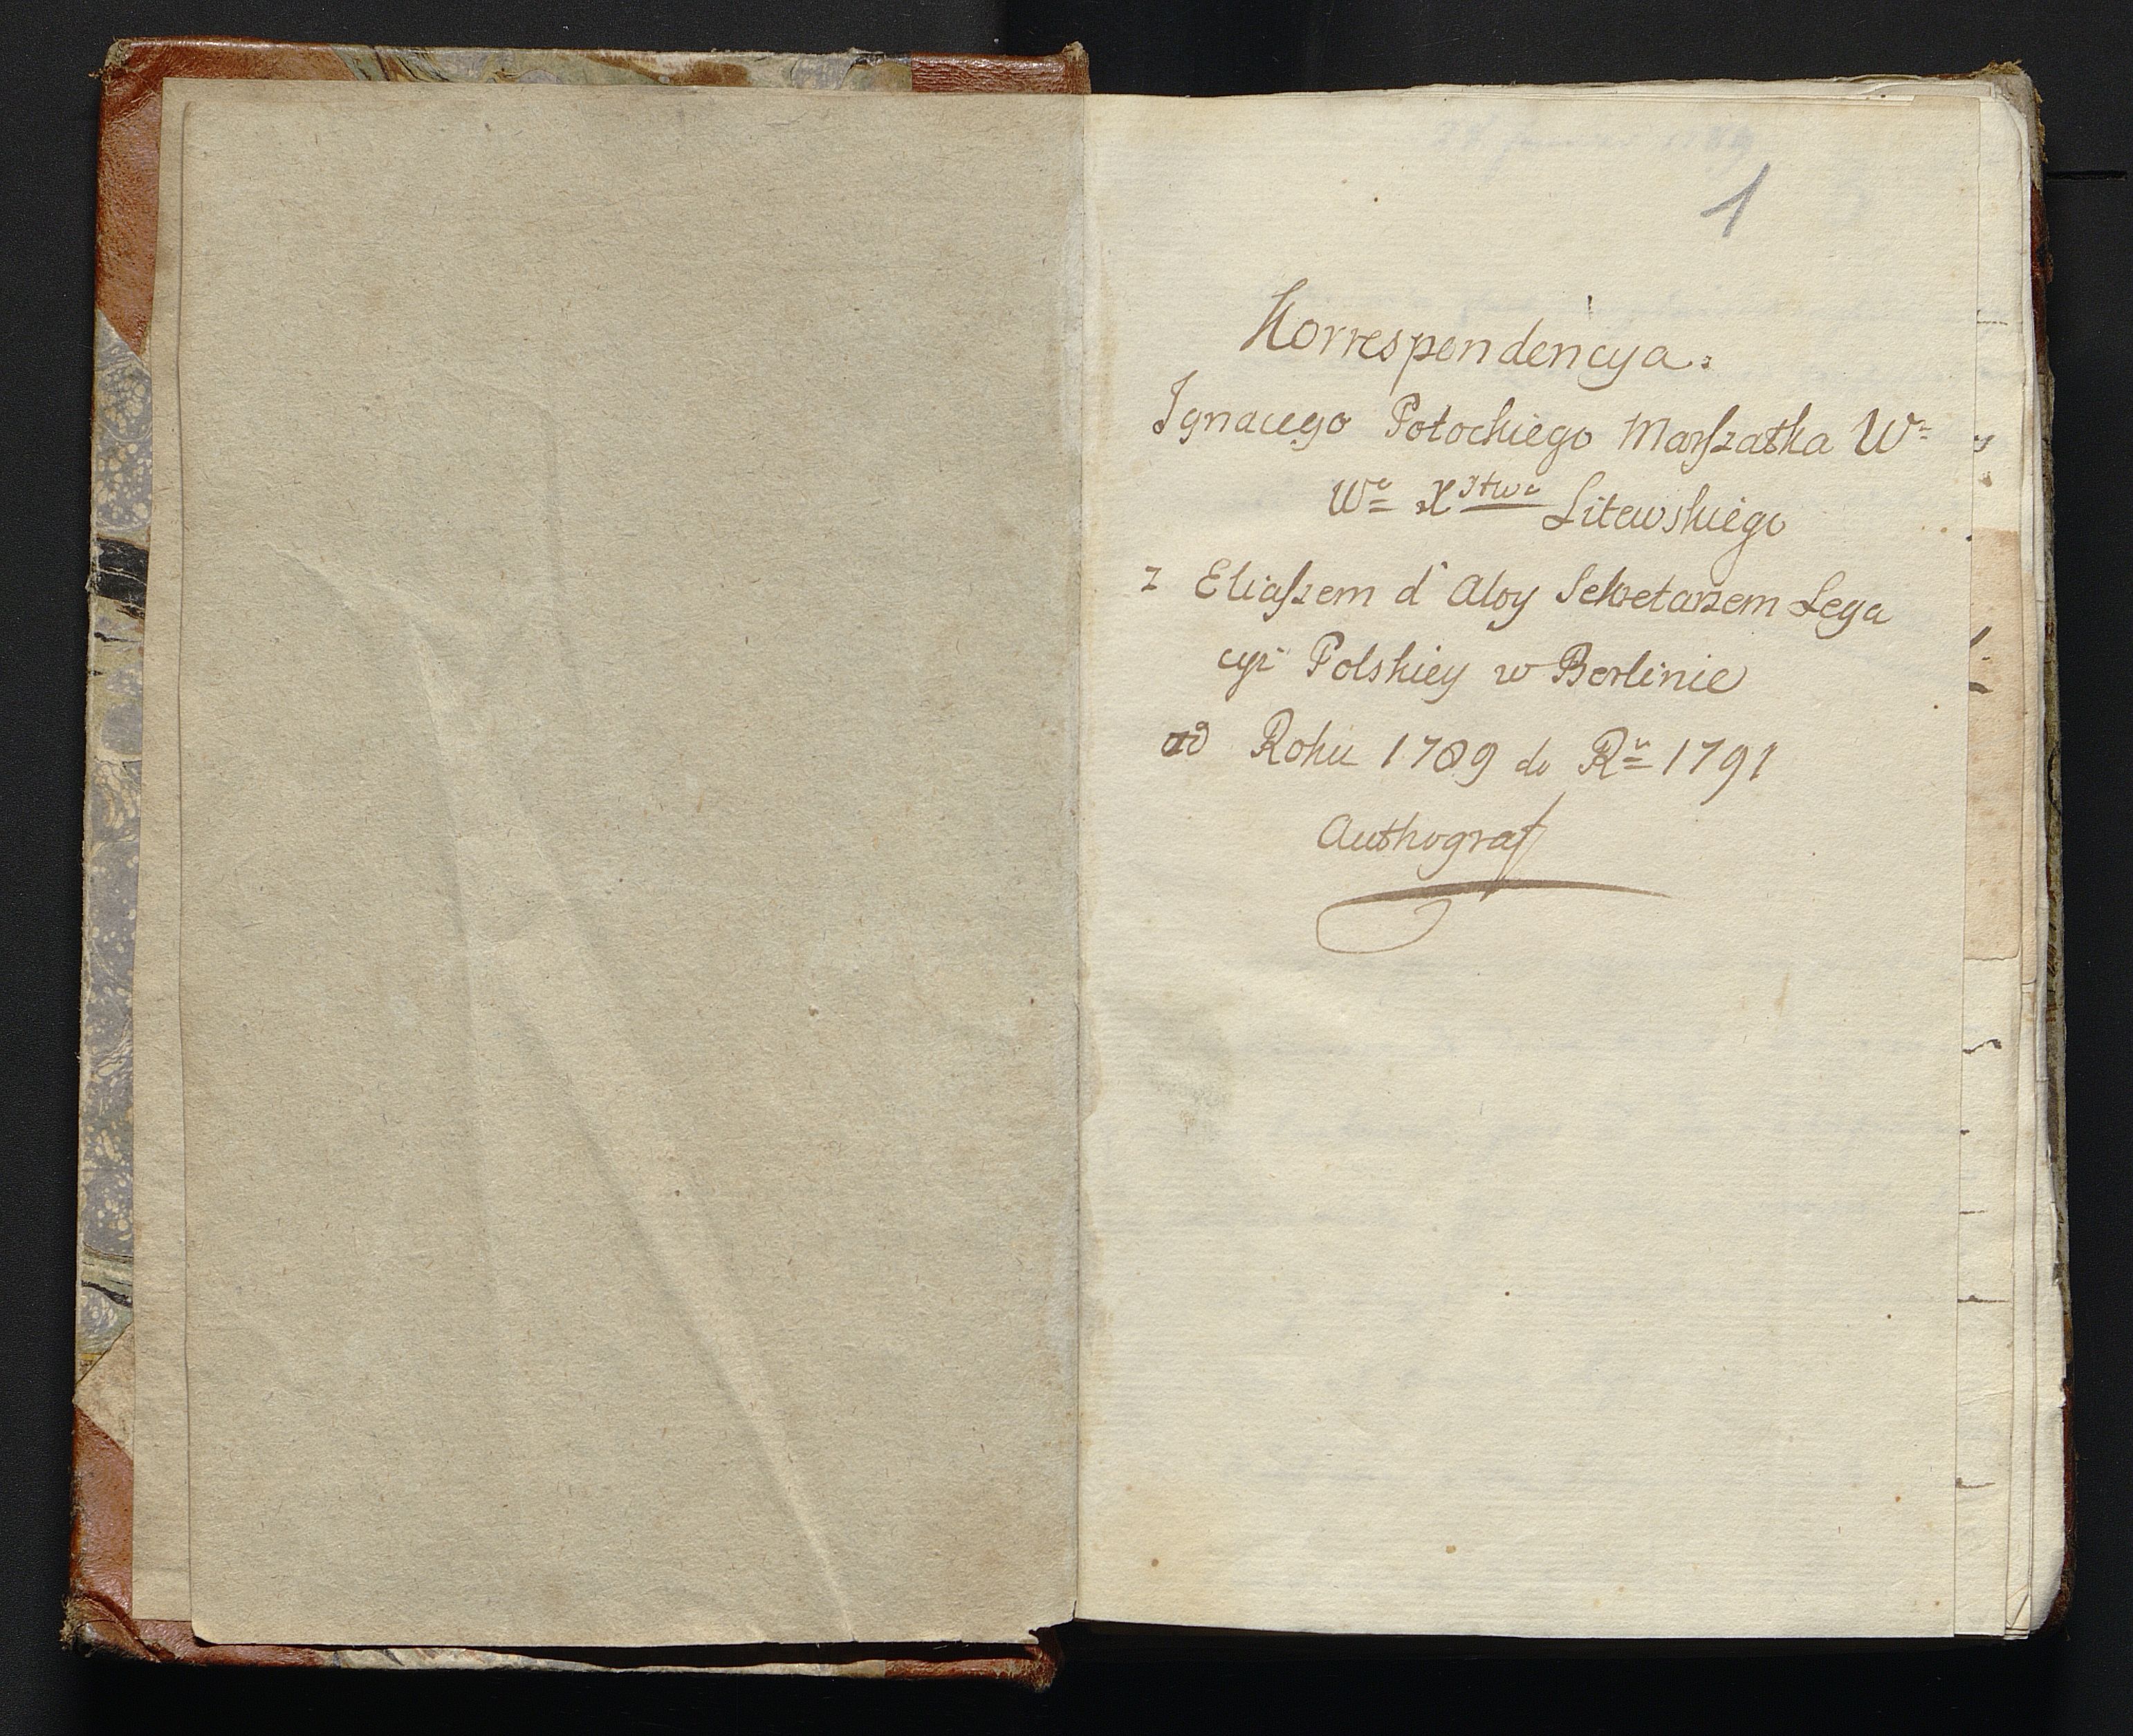 1
Korrespondencya.
Ignacego Potockiego Marſzałka Wº
Wº Xstwa Litewskiego
z Eliaſzem d'Aloy Sekretarzem Lega
cyi Polskiey w Berlinie
od Roku 1789 do Rᵘ 1791
Authograf